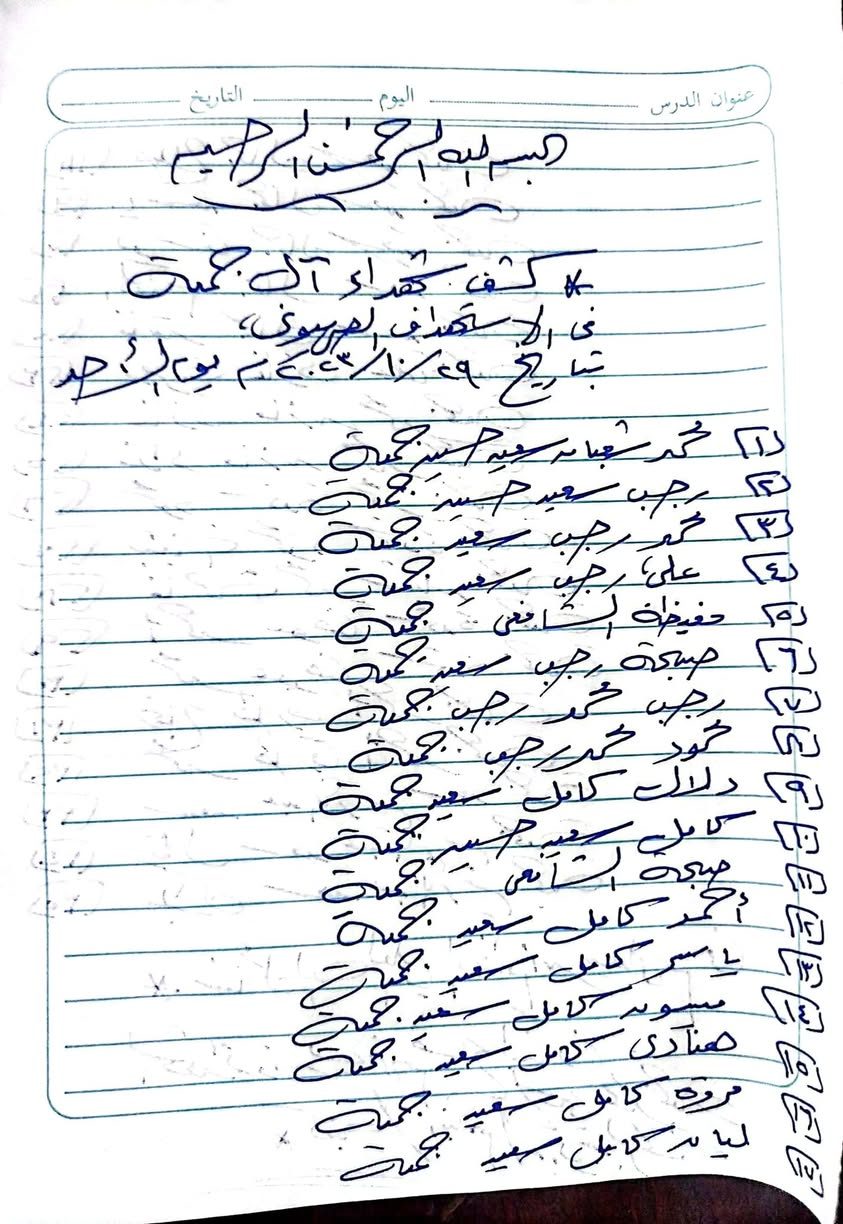 عنوان الدرس اليوم التاريخ
بسم الله الرحمن الرحيم
* كشف شهداء آل جمعة
في الاستهداف الصهيوني،
بتاريخ ٢٠٢٣/١٠/٢٩م يوم الأحد
(١) محمد شعبان سعيد حسين جمعة
(٢) رجب سعيد حسين جمعة
(٣) محمد رجب سعيد جمعة
(٤) علي رجب سعيد جمعة
(٥) حفيظة الشافعي جمعة
(٦) صبحة رجب سعيد جمعة
(٧) رجب محمد رجب جمعة
(٨) محمود محمد رجب جمعة
(٩) دلال كامل سعيد جمعة
(١٠) كامل سعيد حسين جمعة
(١١) صبحة الشافعي جمعة
(١٢) أحمد كامل سعيد جمعة
(١٣) ياسر كامل سعيد جمعة
(١٤) ميسون كامل سعيد جمعة
(١٥) هنادي كامل سعيد جمعة
(١٦) مروة كامل سعيد جمعة
(١٧) ليان كامل سعيد جمعة